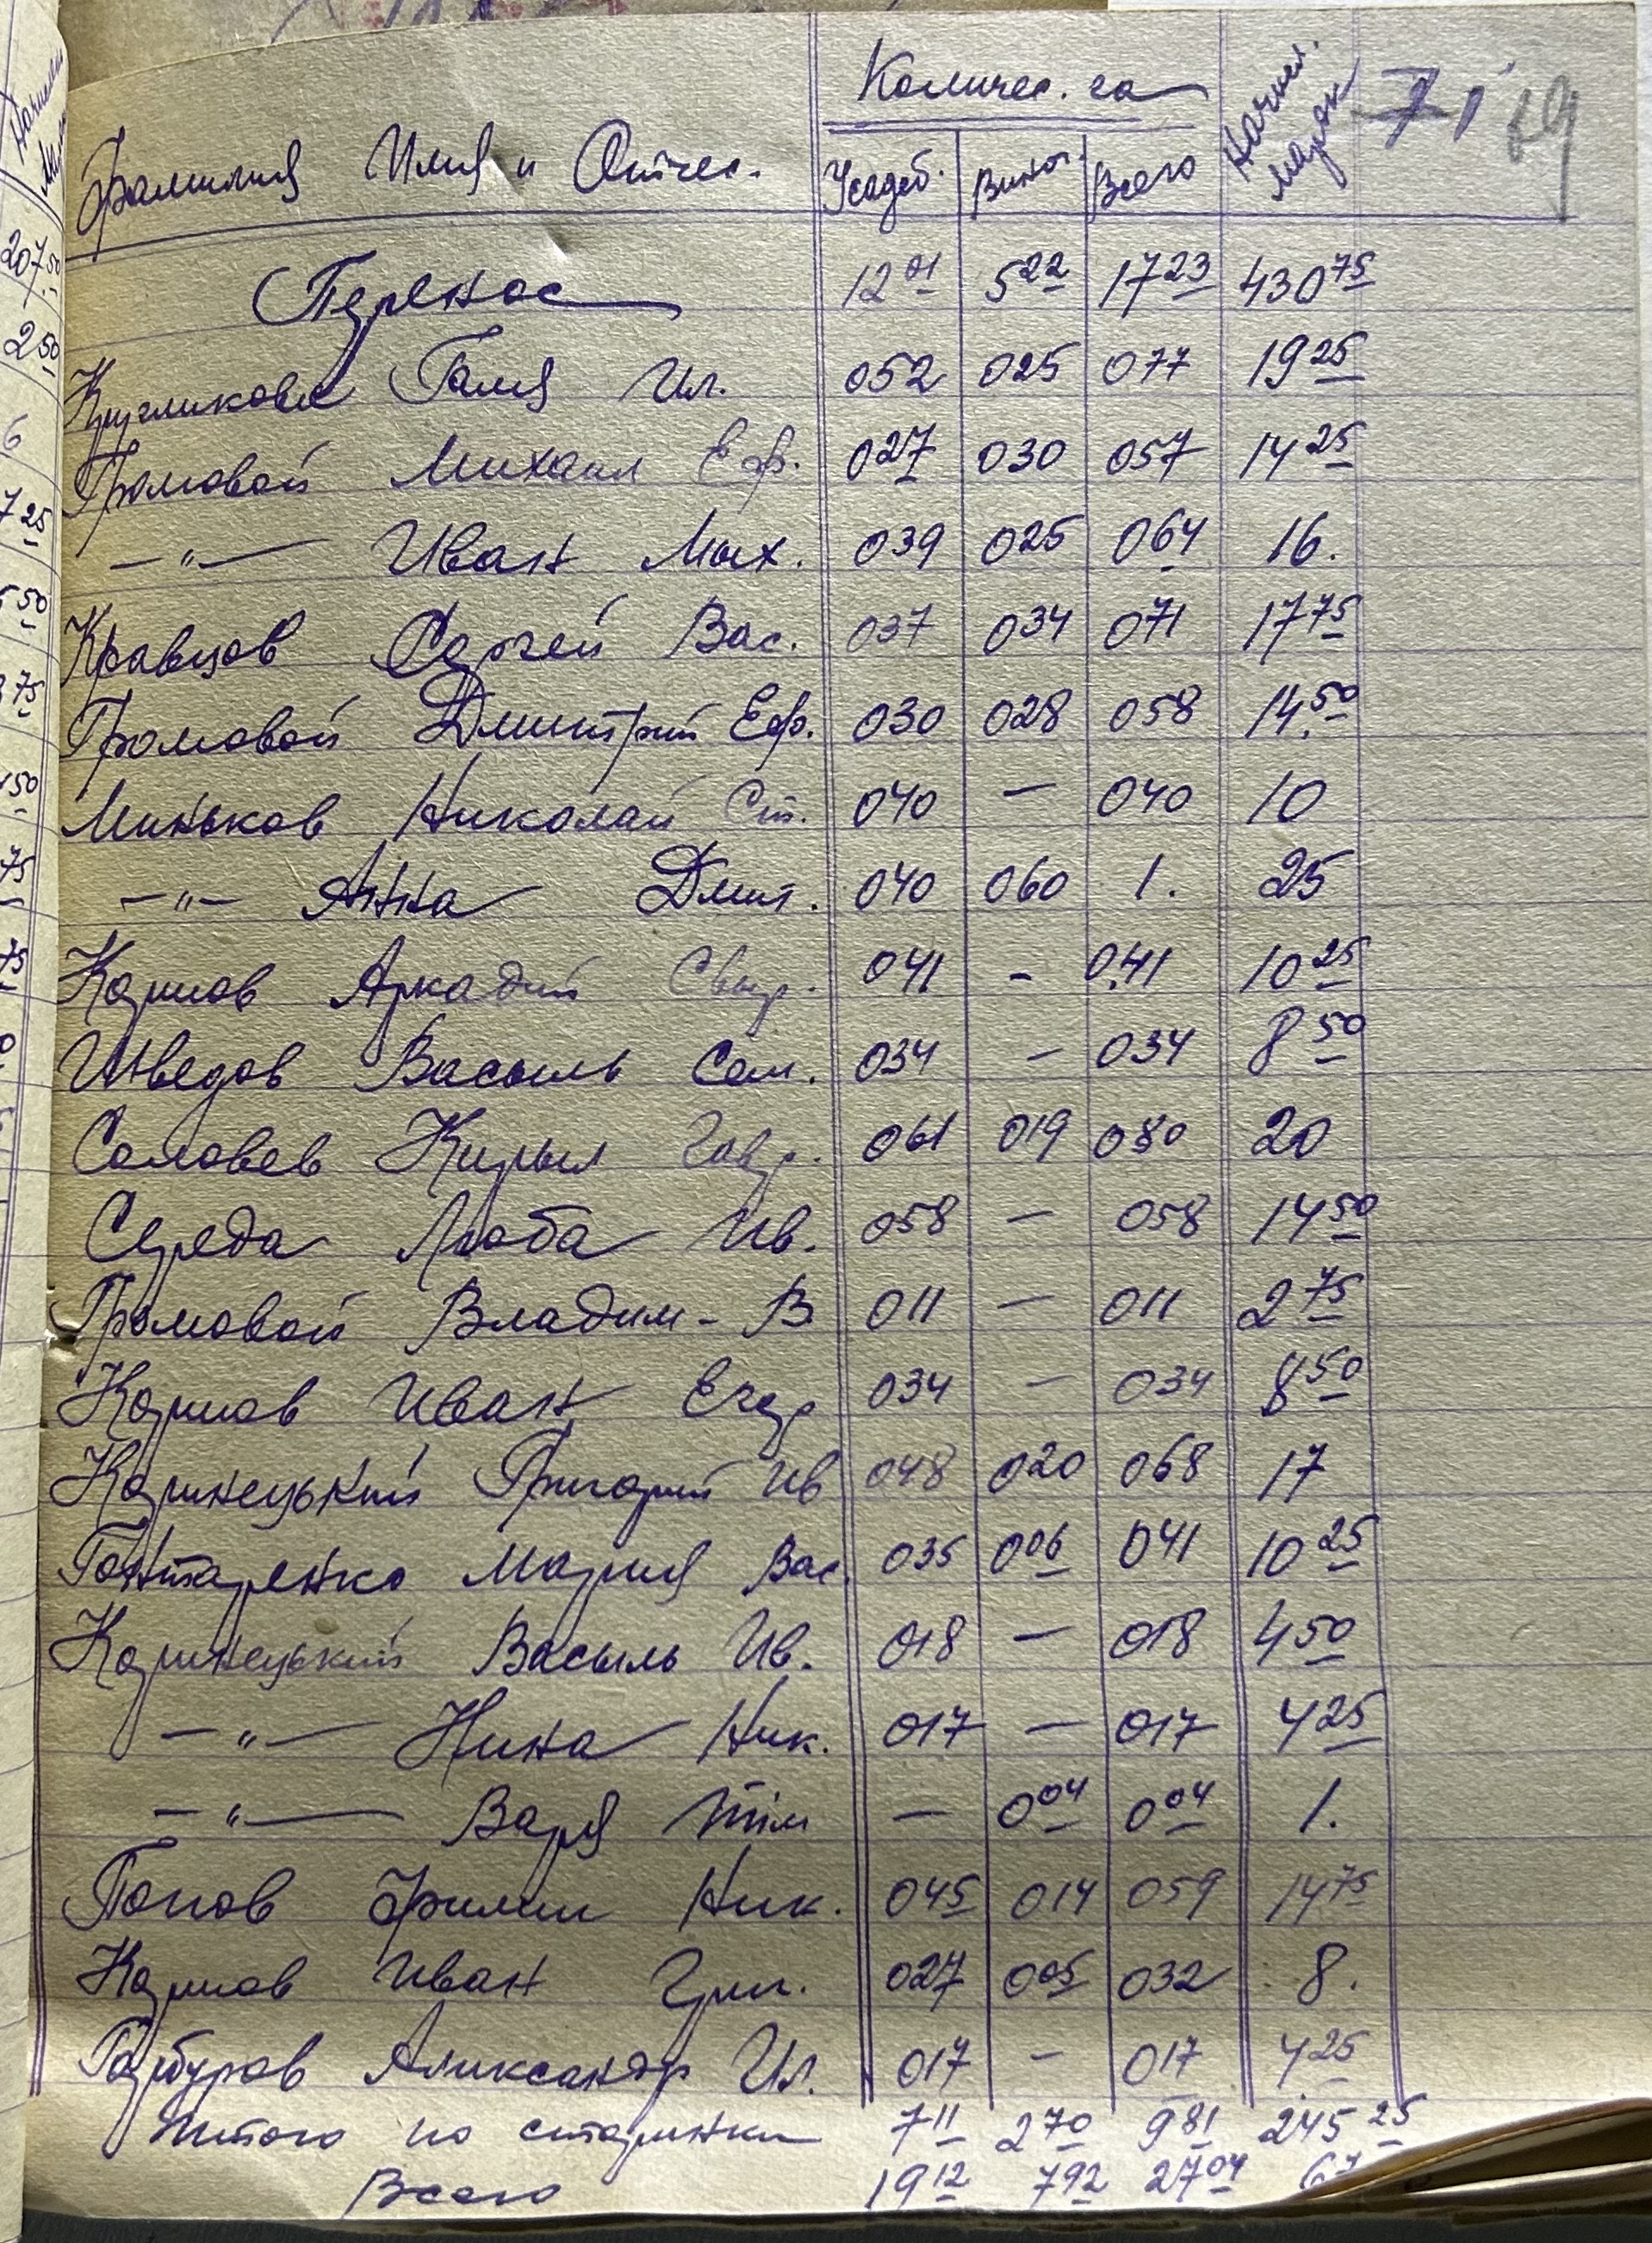 Количес. га
71 69
Фамилия Имя и Отчес. Усадеб. Виног. Всего Начисл. марок
Перенос 12 01 5 22 17 23 430 75
Кругликова Галя Ил. 052 025 077 19 25
Громовой Михаил Еф. 027 030 057 14 25
—"— Иван Мих. 039 025 064 16.
Кравцов Сергей Вас. 037 034 071 17 75
Громовой Дмитрий Еф. 030 028 058 14.50
Миньков Николай Ст. 040 — 040 10
—"— Анна Дмит. 040 060 1. 25
Карпов Аркадий Свир. 041 - 0.41 10 25
Шведов Васыль Сем. 034 — 034 8 50
Соловев Кирыл Гавр. 061 019 080 20
Середа Люба Ив. 058 — 058 14 50
Громовой Владим- В. 011 — 011 2 75
Карпов Иван Егор 034 — 034 8 50
Каринецький Григорий Ив 048 020 068 17
Гонтаренко Мария Вас. 035 006 041 10 25
Каринецький Васыль Ив. 018 — 018 4 50
—"— Нина Ник. 017 — 017 4 25
—"— Варя Тім — 004 004 1.
Попов Филип Ник. 045 014 059 14 75
Карпов Иван Григ. 027 005 032 8.
Гарбуров Александр Ил. 017 — 017 4 25
Итого по старинки 7 11 2 70 9 81 245 25
Всего 19 12 7 92 27 04 67
207.50
2 50
6
7 25
50
75
50
75
75